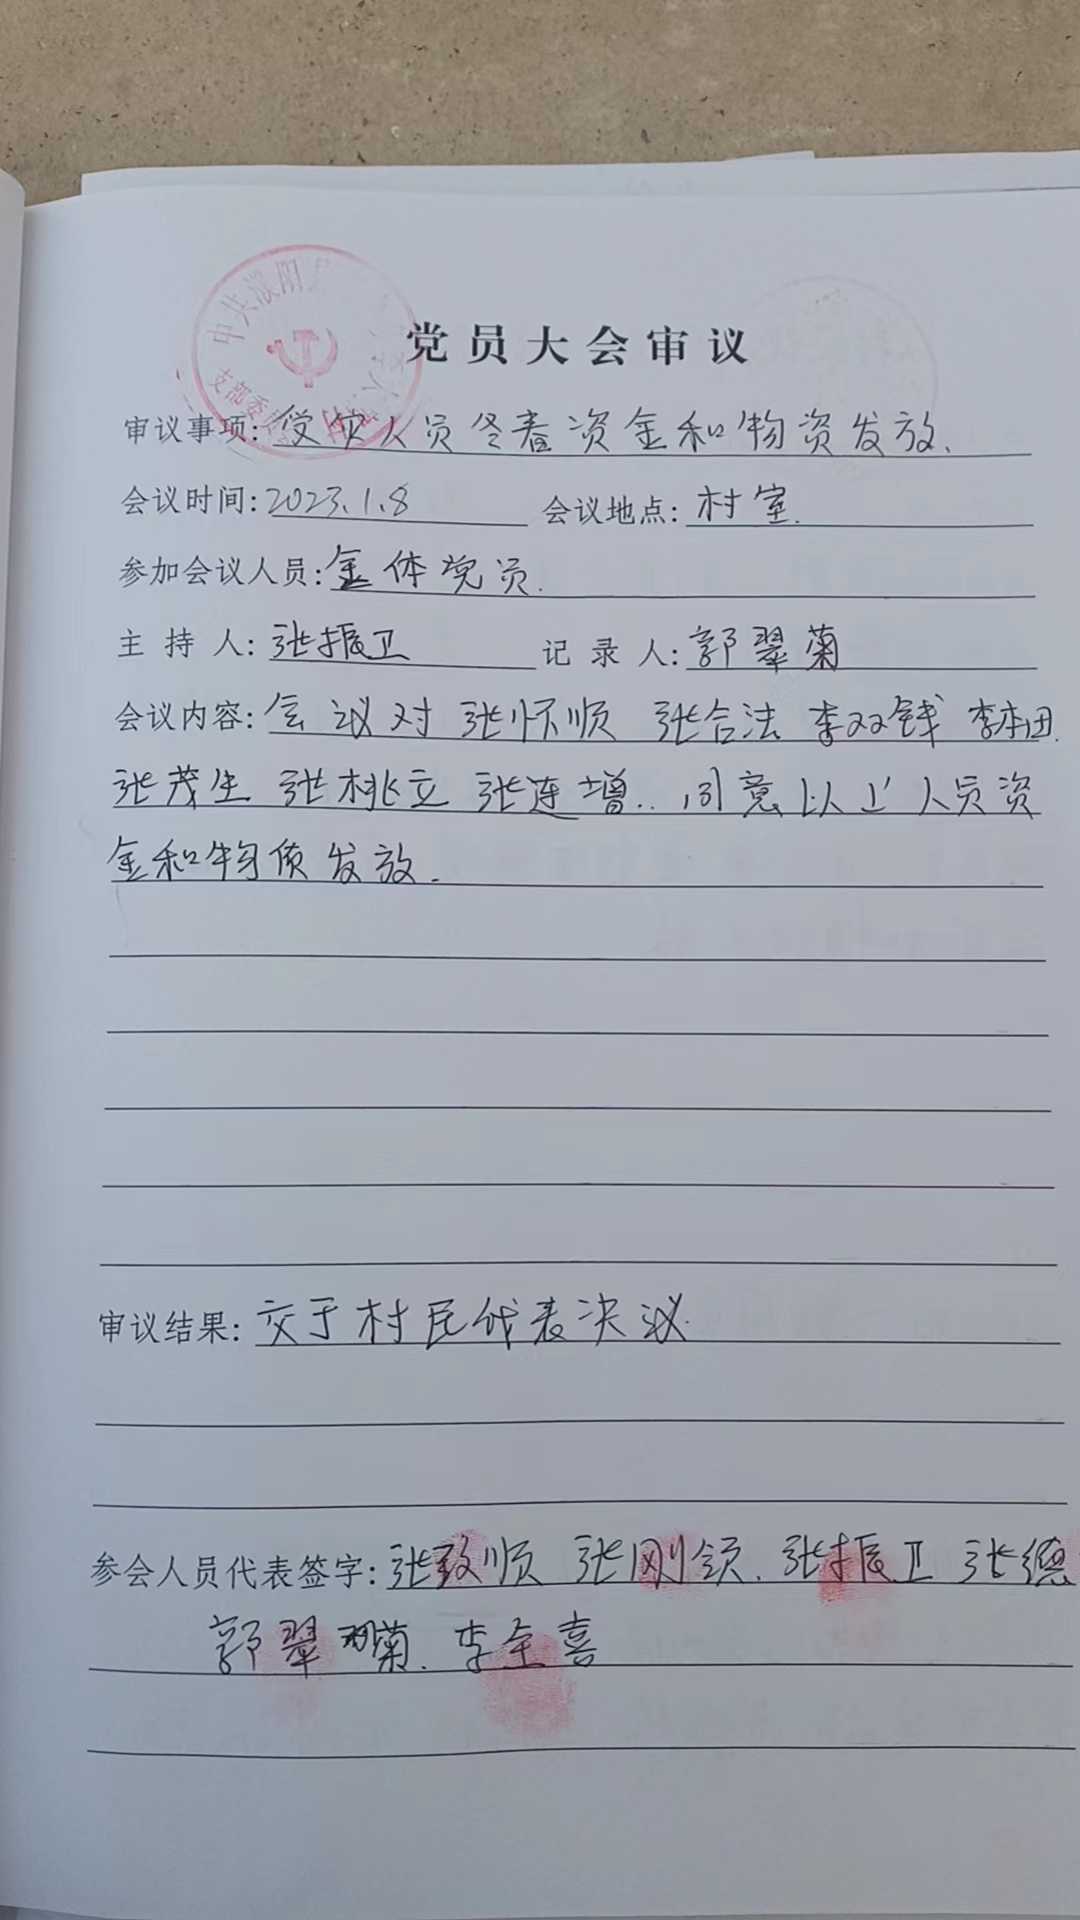 中共濮阳县
支部委员
党员大会审议
审议事项:受灾人员冬春资金和物资发放.
会议时间:2023.1.8 会议地点:村室.
参加会议人员:全体党员.
主持人:张振卫 记录人:郭翠菊
会议内容:会议对 张怀顺 张合法 李双钱 李本田.
张茂生 张桃立 张连增..同意以上人员资
金和物质发放.
审议结果:交于村民代表决议.
参会人员代表签字:张致顺 张刚领.张振卫 张德
郭翠菊.李全喜